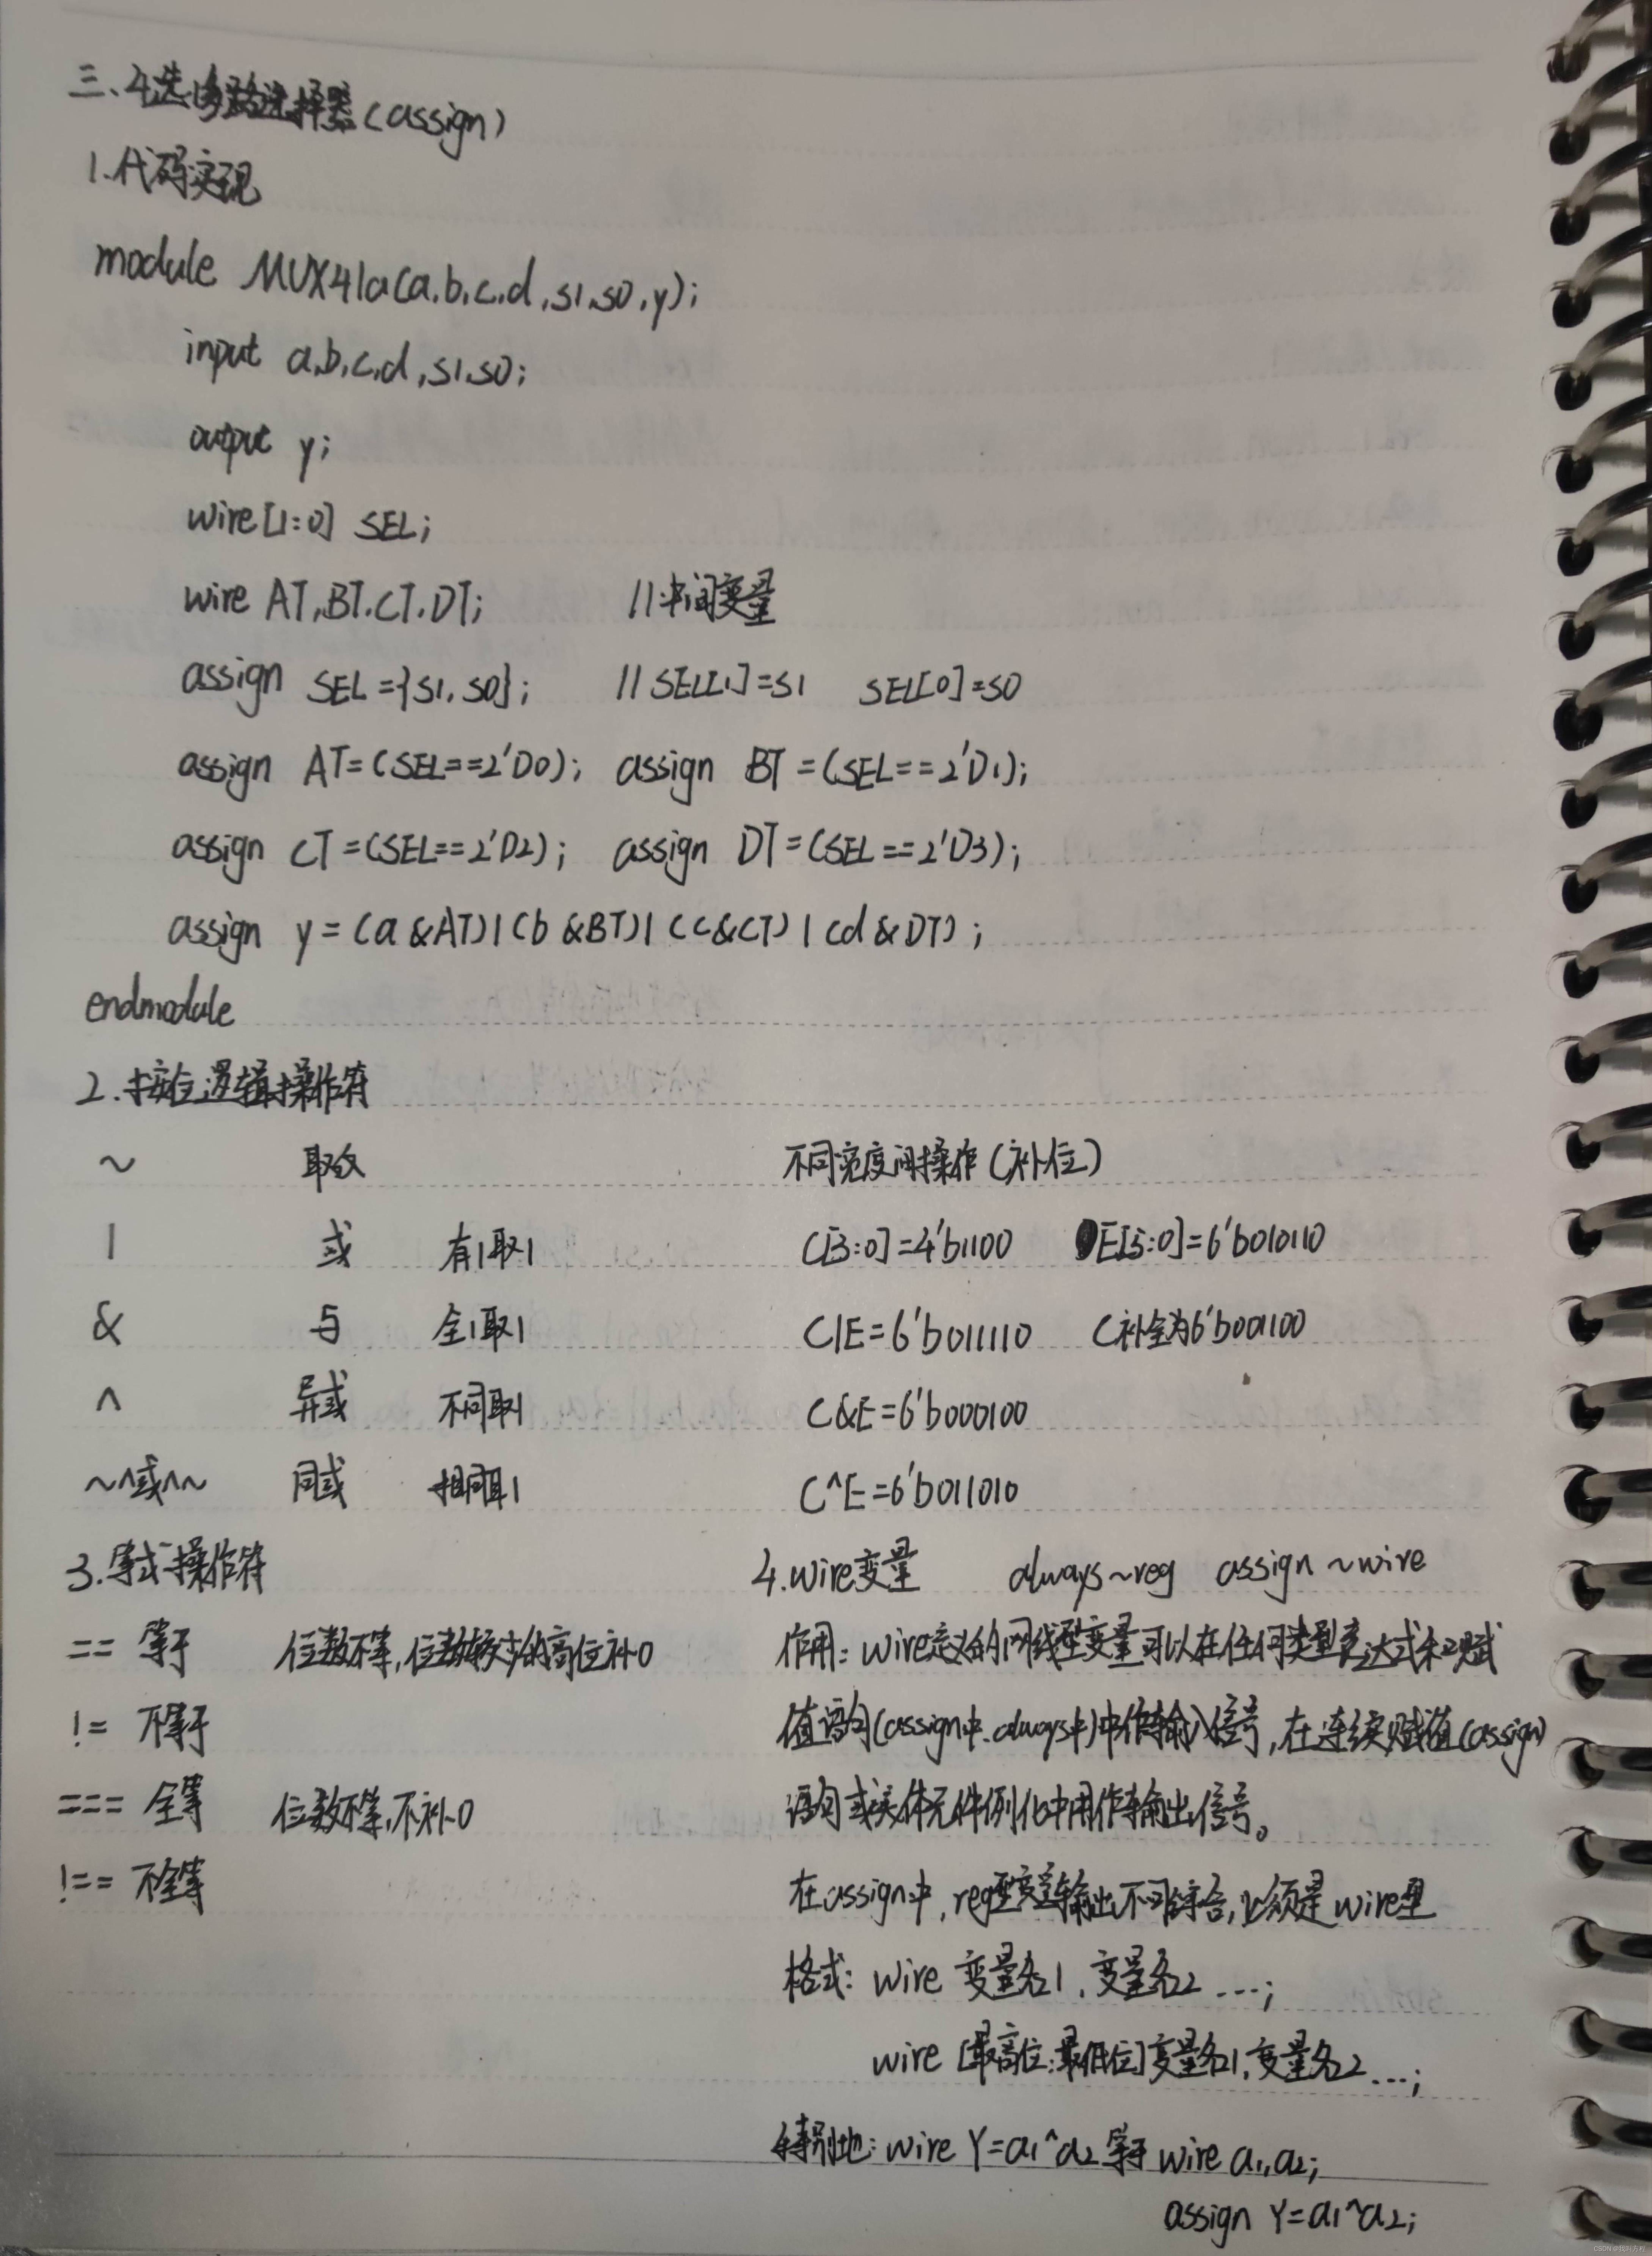 三、4选1多路选择器(assign)
1.代码实现
module MUX41a(a,b,c,d,s1,s0,y);
input a,b,c,d,s1,s0;
output y;
wire[1:0] SEL;
wire AT,BT,CT,DT; //中间变量
assign SEL={s1,s0}; //SEL[1]=s1 SEL[0]=s0
assign AT=(SEL==2'D0); assign BT=(SEL==2'D1);
assign CT=(SEL==2'D2); assign DT=(SEL==2'D3);
assign y=(a&AT)|(b&BT)|(c&CT)|(d&DT);
endmodule
2.按位逻辑操作符
~ 取反
| 或 有1取1
& 与 全1取1
^ 异或 不同取1
~^或^~ 同或 相同取1
不同宽度间操作(补位)
C[3:0]=4'b1100 E[5:0]=6'b010110
C|E=6'b011110 C补全为6'b001100
C&E=6'b000100
C^E=6'b011010
3.等式操作符
== 等于 位数不等,位数较少的高位补0
!= 不等于
=== 全等 位数不等,不补0
!== 不全等
4.wire变量 always~reg assign~wire
作用:wire定义的网线型变量可以在任何类型表达式和赋
值语句(assign中、always中)中作输入信号,在连续赋值(assign)
语句或实体元件例化中用作输出信号。
在assign中,reg型变量输出不可综合,必须是wire型
格式:wire 变量名1,变量名2 ...;
wire [最高位:最低位]变量名1,变量名2...;
特别地:wire Y=a1^a2 等于 wire a1,a2;
assign Y=a1^a2;